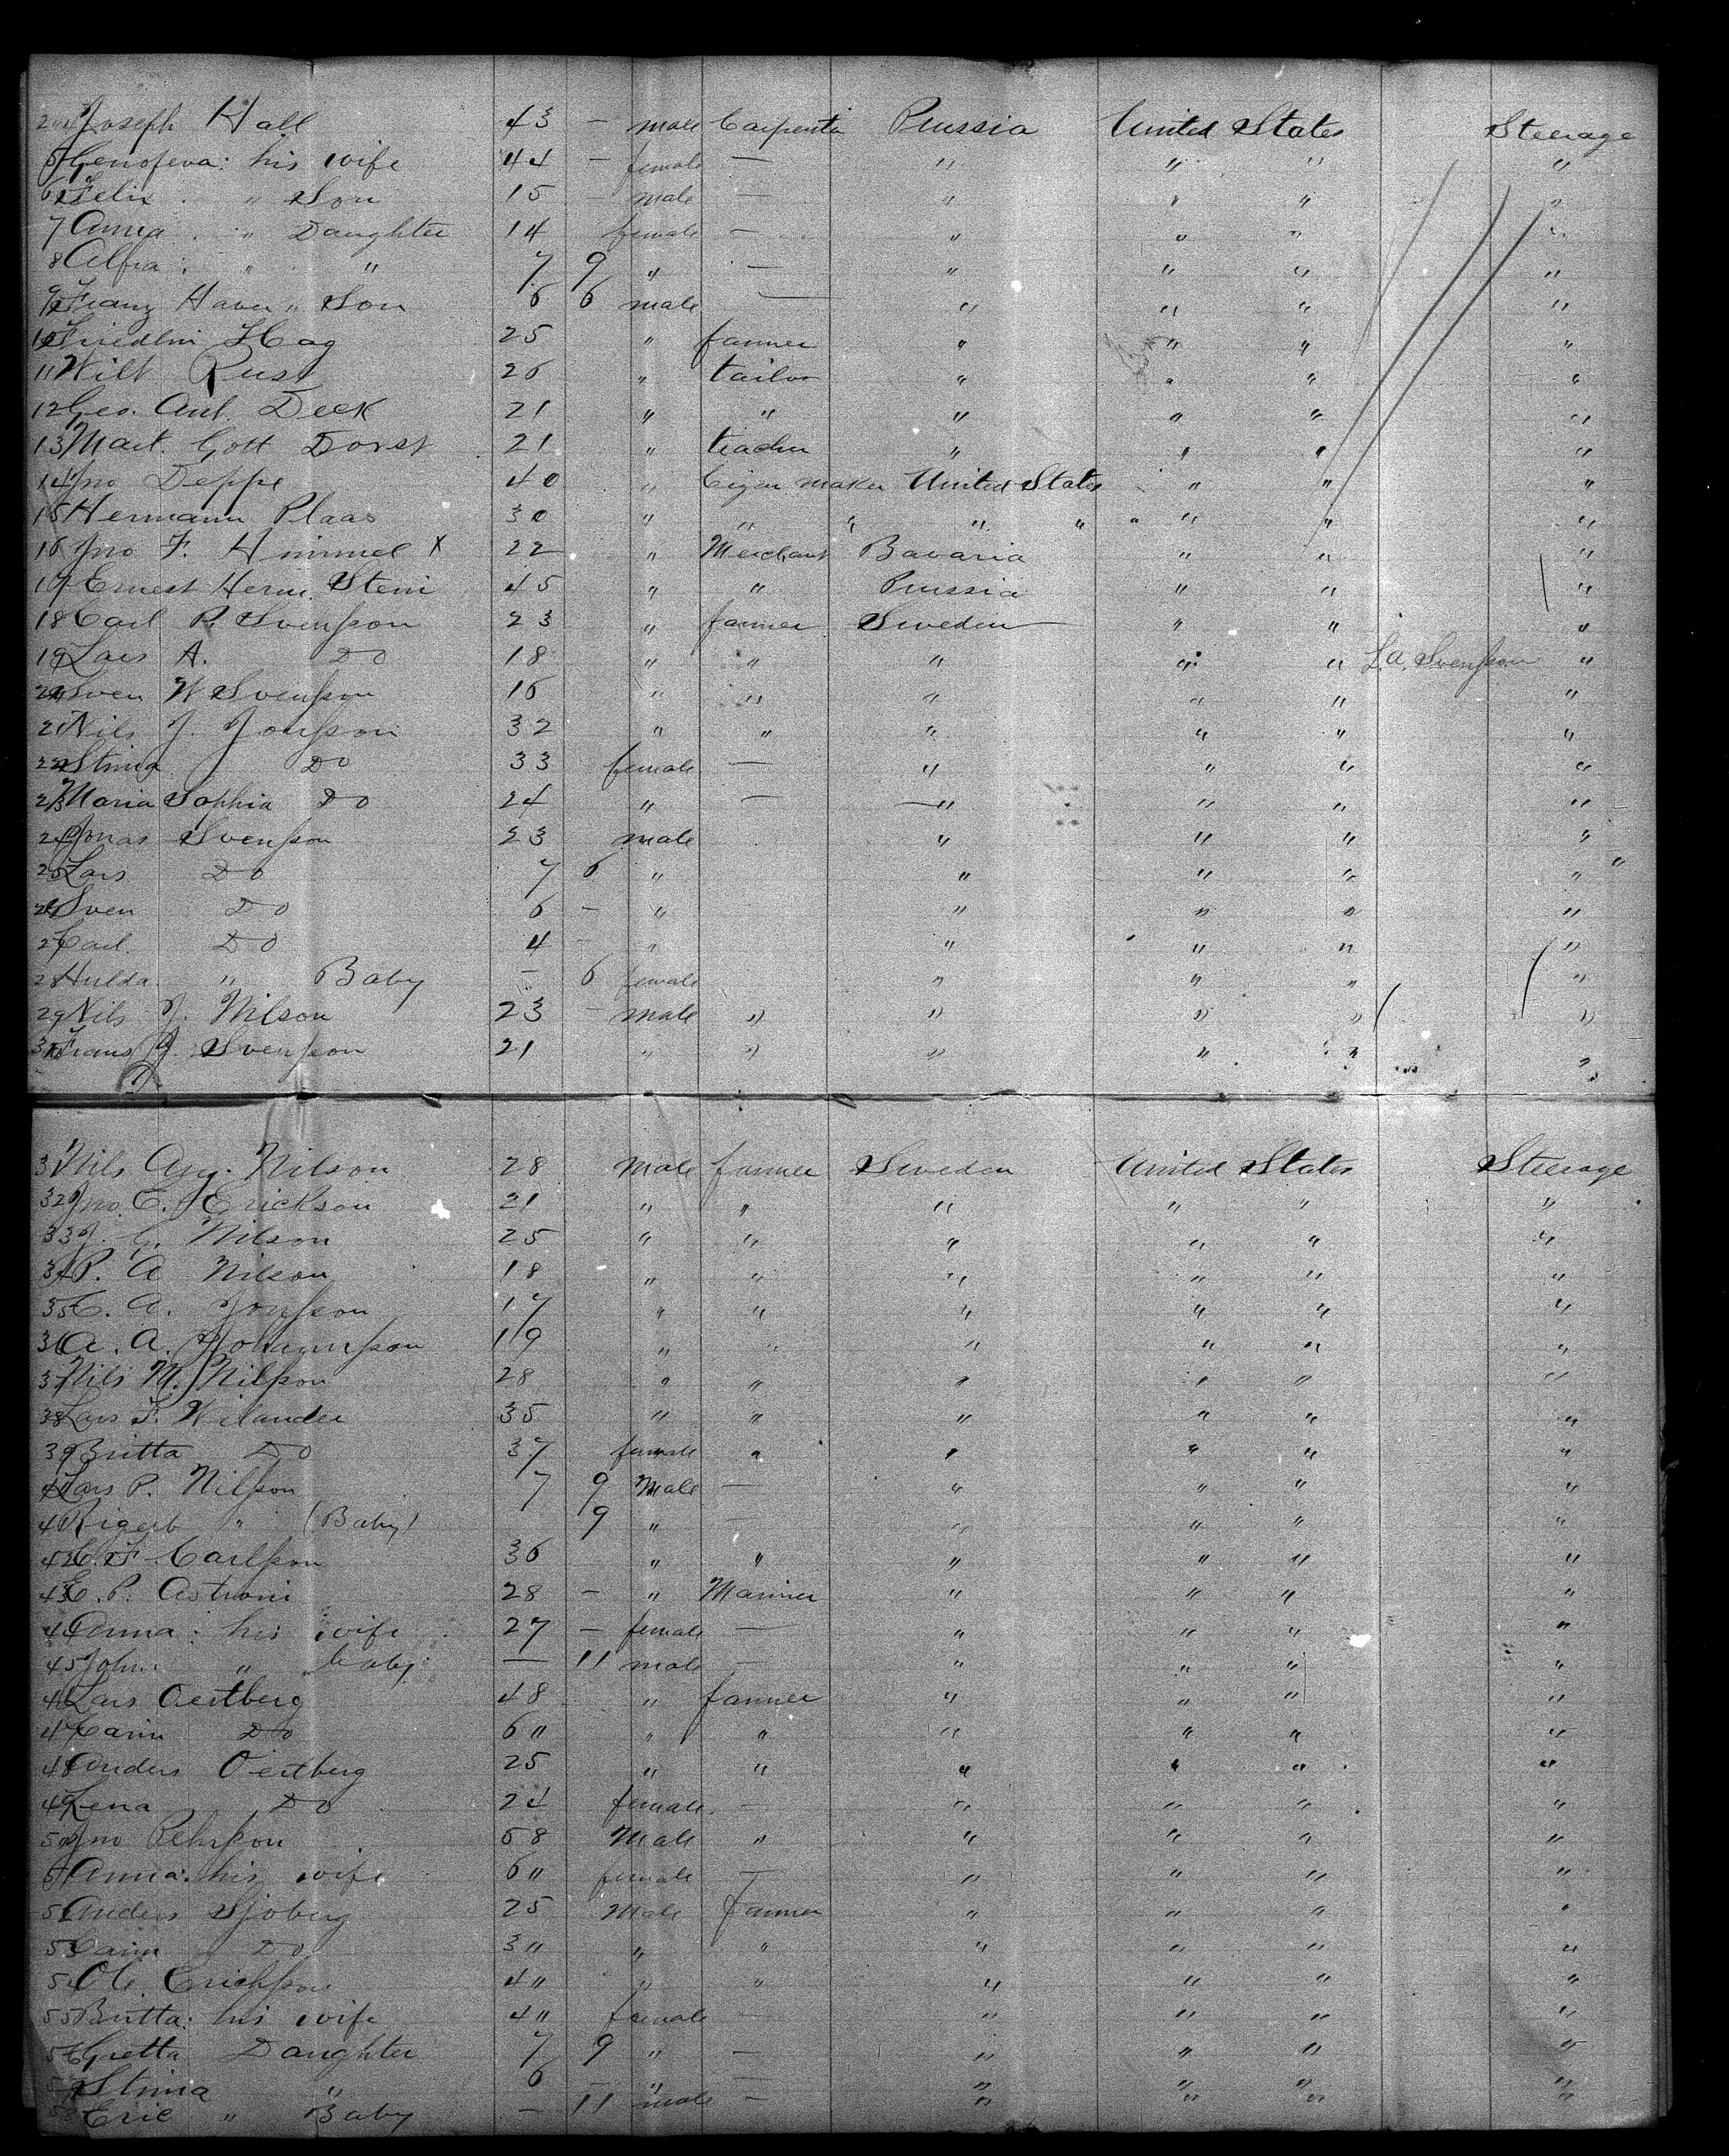 Joseph Hall 43 — male Carpenter Prussia United States Steerage
5 Genofeva: his wife 44 — female — " " " "
6 Felix " Son 15 male — " " " "
7 Anna " Daughter 14 female — " " " "
8 Alfra: " " 7 9 " — " " " "
9 Franz Haver " Son 6 6 male — " " " "
10 Friedlin Hag 25 " farmer " " " "
11 Wilh Rust 26 " tailor " " " "
12 Geo. Ant. Deck 21 " " " " " "
13 Mart. Gott Dorst 21 " teacher " " " "
14 Jno Deppe 40 " Cigar maker United States " " "
15 Hermann Plaas 30 " " " " " " " "
16 Jno F. Himmel X 22 " Merchant Bavaria " " "
17 Ernest Herm. Stein 45 " " Prussia " " "
18 Carl P. Svenson 23 " farmer Sweden " " "
19 Lars A. Do 18 " " " " " L. a. Svenson "
20 Sven W Svenson 16 " " " " " "
21 Nils J. Jonson 32 " " " " " "
22 Stina Do 33 female — " " " "
23 Maria Sophia Do 24 " — " " " "
24 Jonas Svenson 23 male " " " "
25 Lars Do 7 6 " " " " "
26 Sven Do 6 — " " " " "
27 Carl Do 4 — " " " " "
28 Hulda " Baby — 6 female " " " "
29 Nils J. Nilson 23 — male " " " " "
30 Frans J. Svenson 21 " " " " " "
31 Nils Aug. Nilson 28 male farmer Sweden United States Steerage
32 Jno. E. Erickson 21 " " " " " "
33 J. G. Nilson 25 " " " " " "
34 P. A Nilson 18 " " " " " "
35 C. A. Jonson 17 " " " " " "
36 A. A. Johannson 19 " " " " " "
37 Nils M. Nilson 28 " " " " " "
38 Lars F. Wilander 35 " " " " " "
39 Britta Do 37 female " " " " "
40 Lars P. Nilson 7 9 Male — " " " "
41 " (Baby) 9 " — " " " "
42 C. F. Carlson 36 " " " " " "
43 E. P. Astroni 28 — " Mariner " " " "
44 Anna: his wife 27 — female — " " " "
45 John: " baby: — 11 male — " " " "
46 Lars Oertberg 48 " farmer " " " "
47 Carin Do 6 " " " " " " "
48 Anders Oertberg 25 " " " " " "
49 Lena Do 24 female — " " " "
50 Jno Pehrson 58 Male " " " " "
51 Anna: his wife 6 " female — " " " "
52 Anders Sjoberg 25 Male farmer " " " "
53 Carin Do 3 " " " " " " "
54 Ole Erichson 4 " " " " " " "
55 Britta: his wife 4 " female — " " " "
56 Gretta Daughter 7 9 " — " " " "
57 Stina " 6 — " — " " " "
58 Eric " Baby — 11 male — " " " "